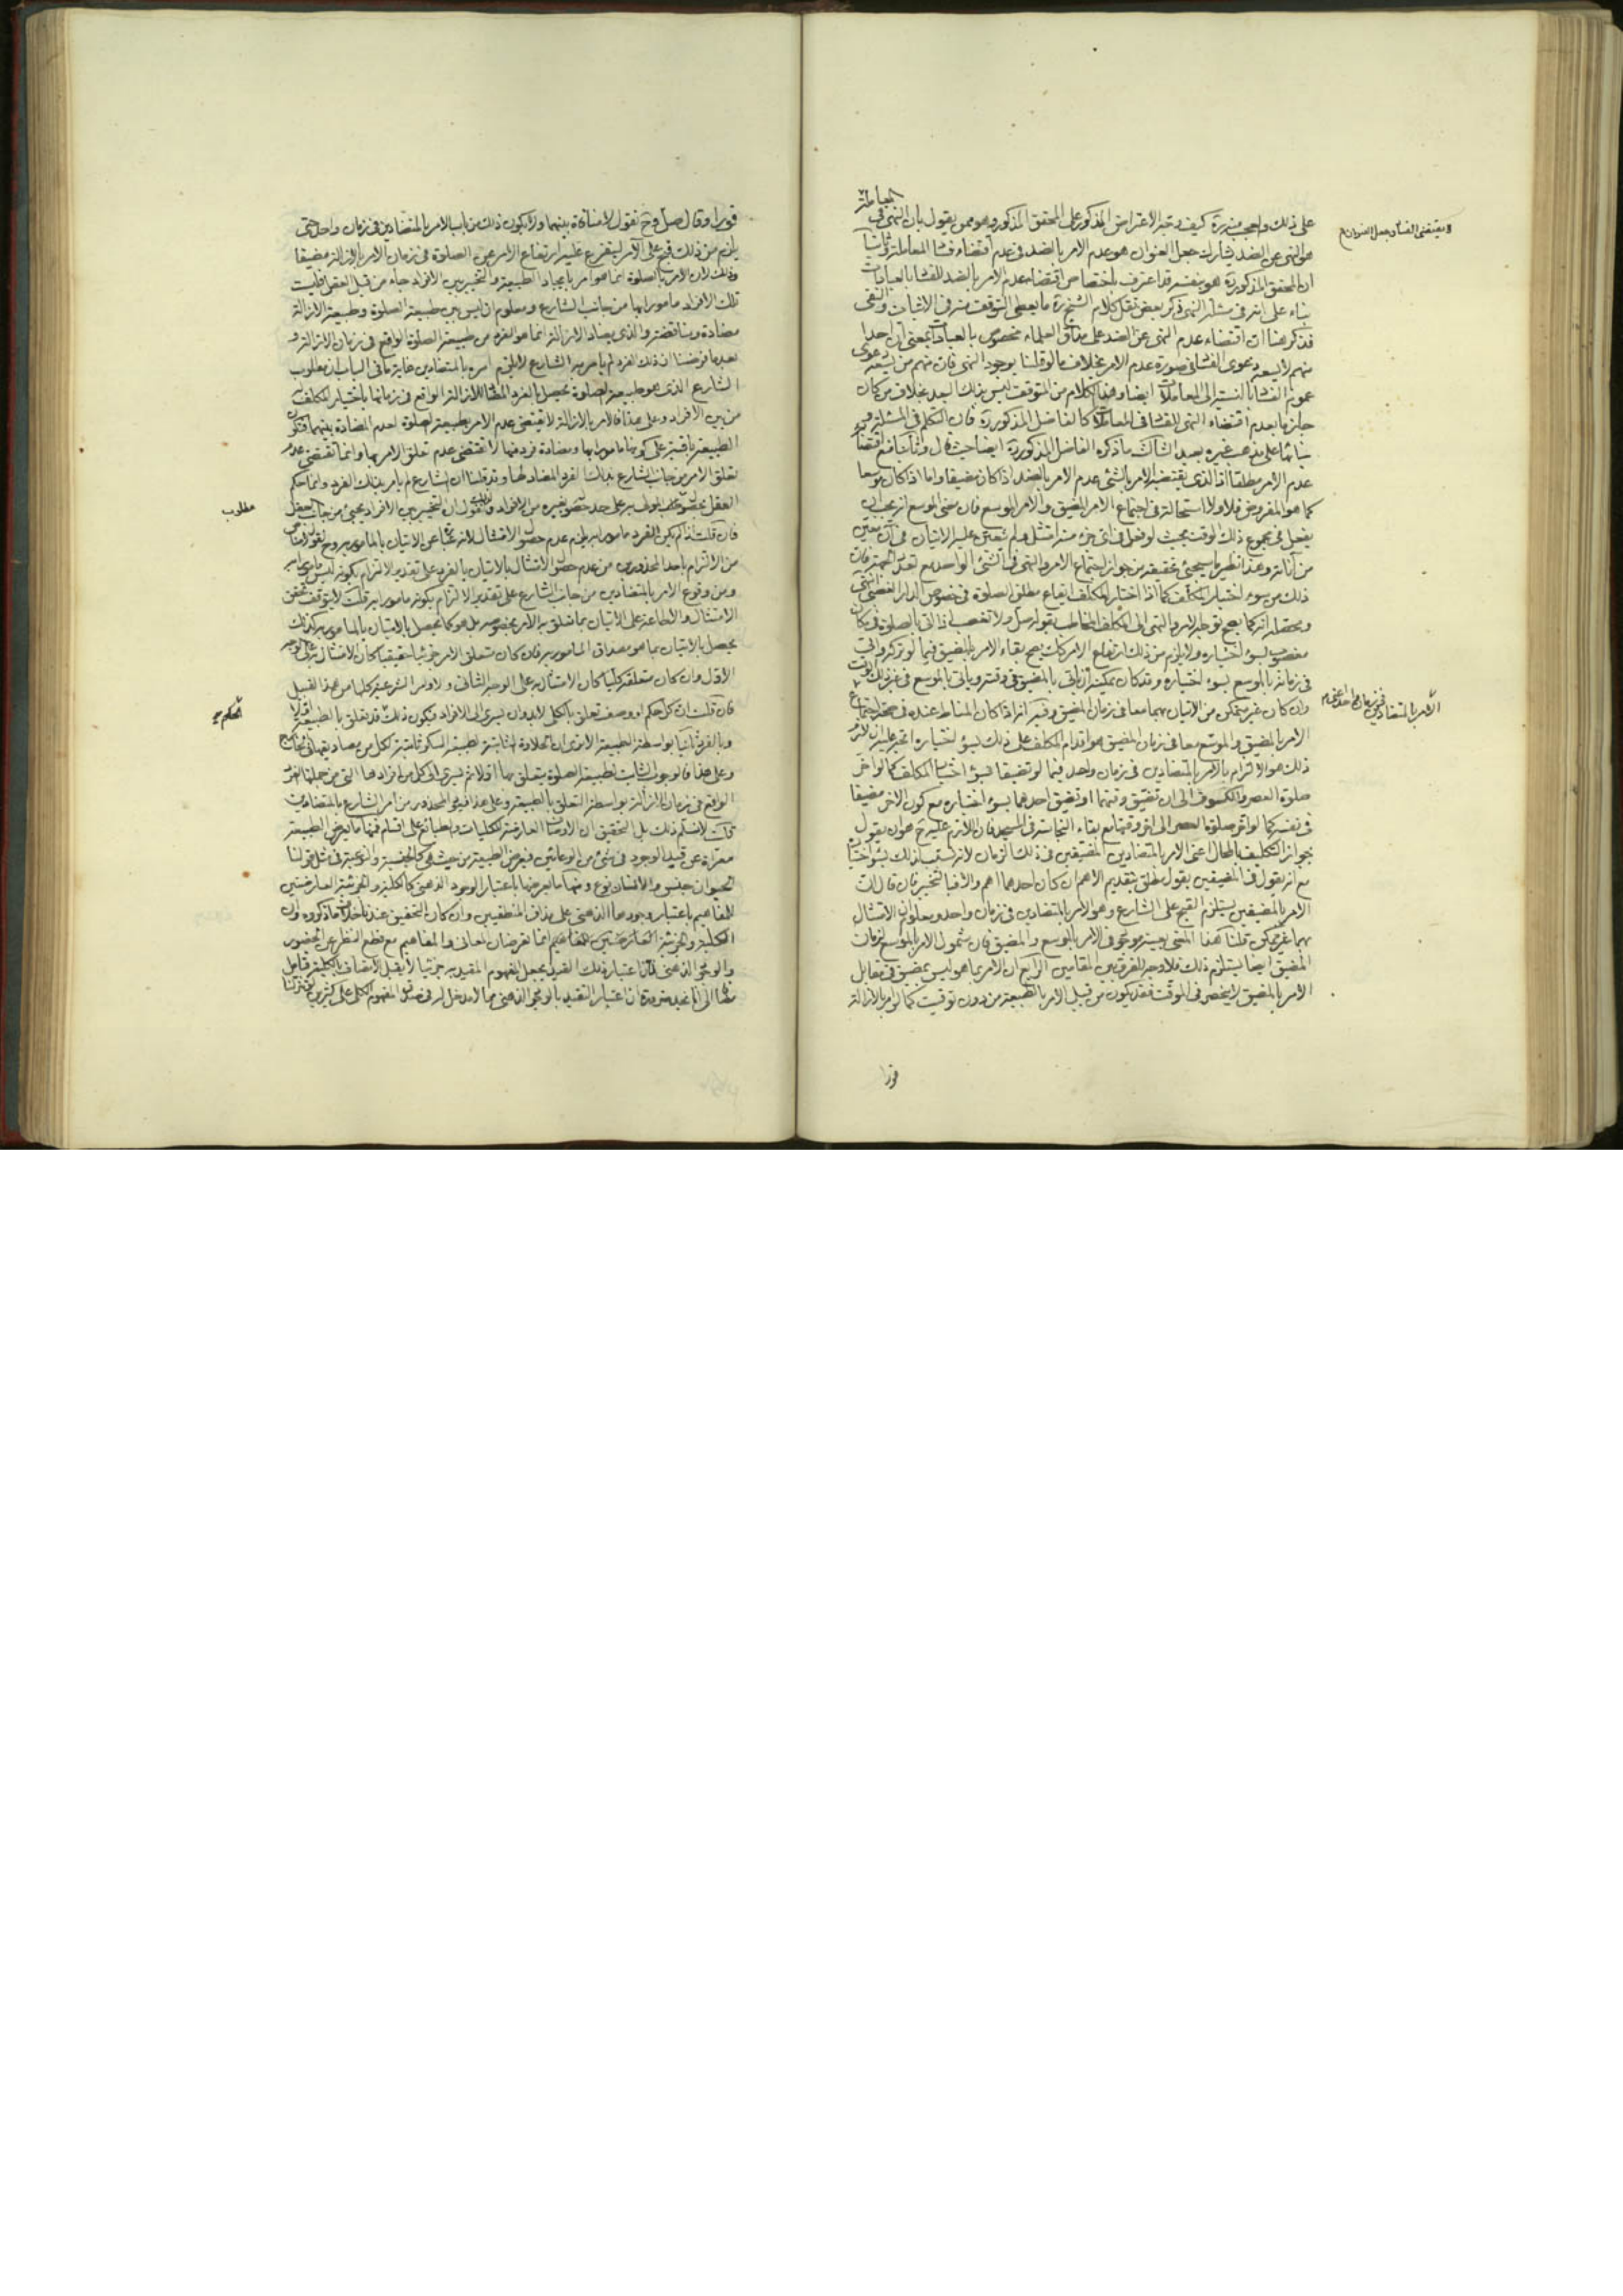 على ذلك واجب منه ره كيف يتجه الاعتراض المذكور على المحقق المذكور وهو ممن يقول بان النهى فى المعاملة
هو النهى عن الضد بشارات جعل العنوان هو عدم الامر بالضد فى عدم اقتضاء فساد المعاملة وثانيا
ان المحقق المذكور ره هو بنفسه قد اعترف باختصاص اقتضاء عدم الامر بالضد للفساد بالعبادات
بناء على انه فى مسئلة النهى ذكر بعض نقل كلام الشيخ ره ما يعطى التوقف منه فى الاثبات والنفى
فذكر هنا ان اقتضاء عدم النهى عن الضد على مذاق العلماء مخصوص بالعبادات بمعنى ان احدا
منهم لا يسعه دعوى الفساد فى صورة عدم الامر بخلاف ما لو قلنا بوجود النهى فان منهم من يسعه دعوى
عموم الفساد بالنسبة الى المعاملات ايضا وهذا الكلام من المتوقف ليس بذلك البعد بخلاف من كان
جازما بعدم اقتضاء النهى الفساد فى المعاملات كالفاضل المذكور ره فان التكلم فى المسئلة
بنائها على مذهب غيره بعيد الثالث ما ذكره الفاضل المذكور ره ايضا حيث قال وثالثا منع اقتضاء
عدم الامر مطلقا اذ الذى يقتضيه الامر بالشئ عدم الامر بالضد اذا كان مضيقا واما اذا كان موسعا
كما هو المفروض فلا ولا استحالة فى اجتماع الامر المضيق والامر الموسع فان معنى الموسع انه يجب ان
يفعل فى مجموع ذلك الوقت بحيث لو فعل فى اى جزء منه امتثل ولم يتعين عليه الاتيان فى ان معين
من اناته وهذا نظير ما سيجيئ تحقيقه من جواز اجتماع الامر والنهى فى الشئ الواحد مع تعدد الجهة فان
ذلك من سوء اختيار المكلف كما اذا اختار المكلف ايقاع مطلق الصلوة فى خصوص الدار الغصبى انتهى
ومحصله انه كما يصح توجه الامر والنهى الى المكلف المخاطب بقوله صل ولا تغصب اذا اتى بالصلوة فى مكان
مغصوب بسوء اختياره ولا يلزم من ذلك ارتفاع الامر كك يصح بقاء الامر بالمضيق فيما لو تركه واتى
فى زمانه بالموسع بسوء اختياره وقد كان يمكنه ان ياتى بالمضيق فى وقته وياتى بالموسع فى غير ذلك الوقت
وان كان غير متمكن من الاتيان بهما معا فى زمان المضيق وفيه انه اذا كان المناط عنده فى صحة اجتماع
الامر بالمضيق والموسع معا فى زمان المضيق هو اقدام المكلف على ذلك بسوء اختياره اتجه عليه ان لازم
ذلك هو الالتزام بالامر بالمتضادين فى زمان واحد فيما لو تضيقا بسوء اختيار المكلف كما لو اخر
صلوة العصر والكسوف الى ان تضيق وقتهما او تضيق احدهما بسوء اختياره مع كون الاخر مضيقا
فى نفسه كما لو اخر صلوة العصر الى اخر وقتها مع بقاء النجاسة فى المسجد فان اللازم عليه ح هو ان يقول
بجواز التكليف بالمحال اعنى الامر بالمتضادين المضيقين فى ذلك الزمان لانه تسبب ذلك بسوء اختياره
مع انه يقول فى المضيقين بقول مطلق بتقديم الاهم ان كان احدهما اهم والا فبالتخيير فان قال ان
الامر بالمضيقين يستلزم القبح على الشارع وهو الامر بالمتضادين فى زمان واحد ومعلوم ان الامتثال
بهما غير ممكن قلنا هذا المعنى بعينه موجود فى الامر بالموسع والمضيق فان شمول الامر بالموسع لزمان
المضيق ايضا يستلزم ذلك فلا وجه للفرق بين المقامين الرابع ان الامر بما هو ليس بمضيق فى مقابل
الامر بالمضيق لا ينحصر فى الموقت فقد يكون من قبيل الامر بالطبيعة من دون توقيت كما لو امر بالازالة
فورا
ويقتضى الفساد جعل العنوان
الامر بالمتضادين فى زمان واحد اعنى
فورا وقال صل وح نقول لا منافاة بينهما ولا يكون ذلك من باب الامر بالمتضادين فى زمان واحد حتى
يلزم من ذلك قبح على الامر ليتفرع عليه ارتفاع الامر عن الصلوة فى زمان الامر بالازالة مضيقا
وذلك لان الامر بالصلوة انما هو امر بايجاد الطبيعة والتخيير بين الافراد جاء من قبل العقل فليست
تلك الافراد مامورا بها من جانب الشارع ومعلوم ان ليس بين طبيعة الصلوة وطبيعة الازالة
مضادة ومناقضة والذى يضاد الازالة انما هو الفرد من طبيعة الصلوة الواقع فى زمان الازالة و
بعد ما فرضنا ان ذلك الفرد لم يامر به الشارع لا يلزم امره بالمتضادين غاية ما فى الباب ان مطلوب
الشارع الذى هو طبيعة الصلوة يحصل بالفرد المضاد للازالة الواقع فى زمانها باختيار المكلف
من بين الافراد وعلى هذا فالامر بالازالة لا يقتضى عدم الامر بطبيعة الصلوة لعدم المضادة بينهما فتكون
الطبيعة باقية على كونها مامورا بها ومضادة فرد منها لا تقتضى عدم تعلق الامر بها وانما تقتضى عدم
تعلق الامر من جانب الشارع بذلك الفرد المضاد لها وقد قلنا ان الشارع لم يامر بذلك الفرد وانما حكم
العقل
فان قلت اذا لم يكن الفرد مامورا به يلزم عدم حصول الامتثال لانه عبارة عن الاتيان بالمامور به وح نقول لا مناص
من الالتزام باحد المحذورين من عدم حصول الامتثال بالاتيان بالفرد على تقدير الالتزام بكونه ليس مامورا به
ومن وقوع الامر بالمتضادين من جانب الشارع على تقدير الالتزام بكونه مامورا به قلت لا يتوقف تحقق
الامتثال والاطاعة على الاتيان بما تعلق به الامر بخصوصه بل هو كما يحصل بالاتيان بالمامور به كذلك
يحصل بالاتيان بما هو مصداق المامور به فان كان متعلق الامر جزئيا حقيقيا كان الامتثال به على الوجه
الاول وان كان متعلقه كليا كان الامتثال به على الوجه الثانى والاوامر الشرعية كلها من هذا القبيل
فان قلت ان كل حكم او وصف تعلق بالكلى لا بد وان يسرى الى الافراد فيكون ذلك قد تعلق بالطبيعة اولا
وبالفرد ثانيا بواسطة الطبيعة الا ترى ان الحلاوة الثابتة لطبيعة السكر ثابتة لكل من مصاديقها فى الخارج
وعلى هذا فالوجوب الثابت لطبيعة الصلوة يتعلق بها اولا ثم يسرى الى كل من افرادها التى من جملتها الفرد
الواقع فى زمان الازالة بواسطة التعلق بالطبيعة وعلى هذا فيعود المحذور من امر الشارع بالمتضادين
قلت لا نسلم ذلك بل التحقيق ان الاوصاف العارضة للكليات والطبائع على اقسام فمنها ما يعرض الطبيعة
معراة عن قيد الوجود فى شئ من الوعائين فيعرض الطبيعة من حيث هى كالجنسية والنوعية فى مثل قولنا
الحيوان جنس والانسان نوع ومنها ما يعرضها باعتبار الوجود الذهنى كالكلية والجزئية العارضتين
للمفاهيم باعتبار وجودها الذهنى على مذاق المنطقيين وان كان التحقيق عندنا خلاف ما ذكروه وان
الكلية والجزئية العارضتين للمفاهيم انما تعرضان لمعان والمفاهيم مع قطع النظر عن الحضور
والوجود الذهنى لان اعتبار ذلك القيد يجعل المفهوم المقيد به جزئيا لا يقبل الاتصاف بالكلية
ضرورة ان اعتبار التقييد بالوجود الذهنى مما لا مدخل له فى صدق المفهوم الكلى على كثيرين
مطلوب
الحكم